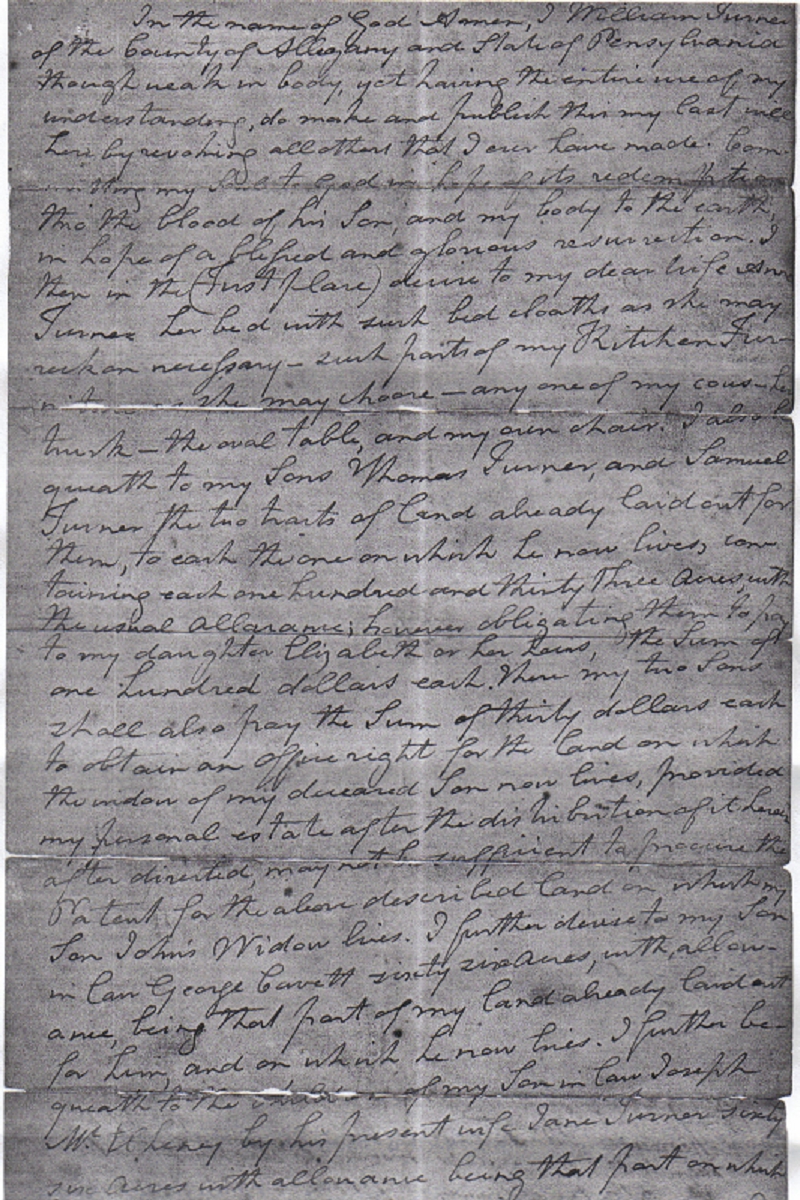 In the name of God Amen, I William Turner
of the County of Allegany and State of Pensylvania
though weak in body, yet having the entire use of my
understanding, do make and publish this my last will
here by revoking all others that I ever have made. Com-
mitting my Soul to God in hope of its redemption
thro the blood of his Son, and my body to the earth,
in hope of a blessed and glorious resurrection. I
then in the (first place) devise to my dear wife Ann
Turner her bed with such bed cloaths as she may
reckon necessary - such parts of my Kitchen Fur-
niture as she may choose - any one of my cows - her
trunk - the oval table, and my own chair. I also be
queath to my Sons Thomas Turner, and Samuel
Turner the two tracts of Land already laid out for
them, to each the one on which he now lives, con-
taining each one hundred and thirty three acres, with
the usual allowance; however obligating them to pay
to my daughter Elizabeth or her heirs, the Sum of
one hundred dollars each. These my two Sons
shall also pay the Sum of thirty dollars each
to obtain an office right for the Land on which
the widow of my deceased Son now lives, provided
my personal estate after the distribution of it herein
after directed, may not be sufficient to procure the
Patent for the above described Land on which my
Son John's Widow lives. I further devise to my Son
in law George Cavett sixty six acres, with allow-
ance, being that part of my land already laid out
for him, and on which he now lives. I further be-
queath to the children of my Son in law Joseph
Mc Elheney by his present wife Jane Turner sixty
six acres with allowance being that part on which